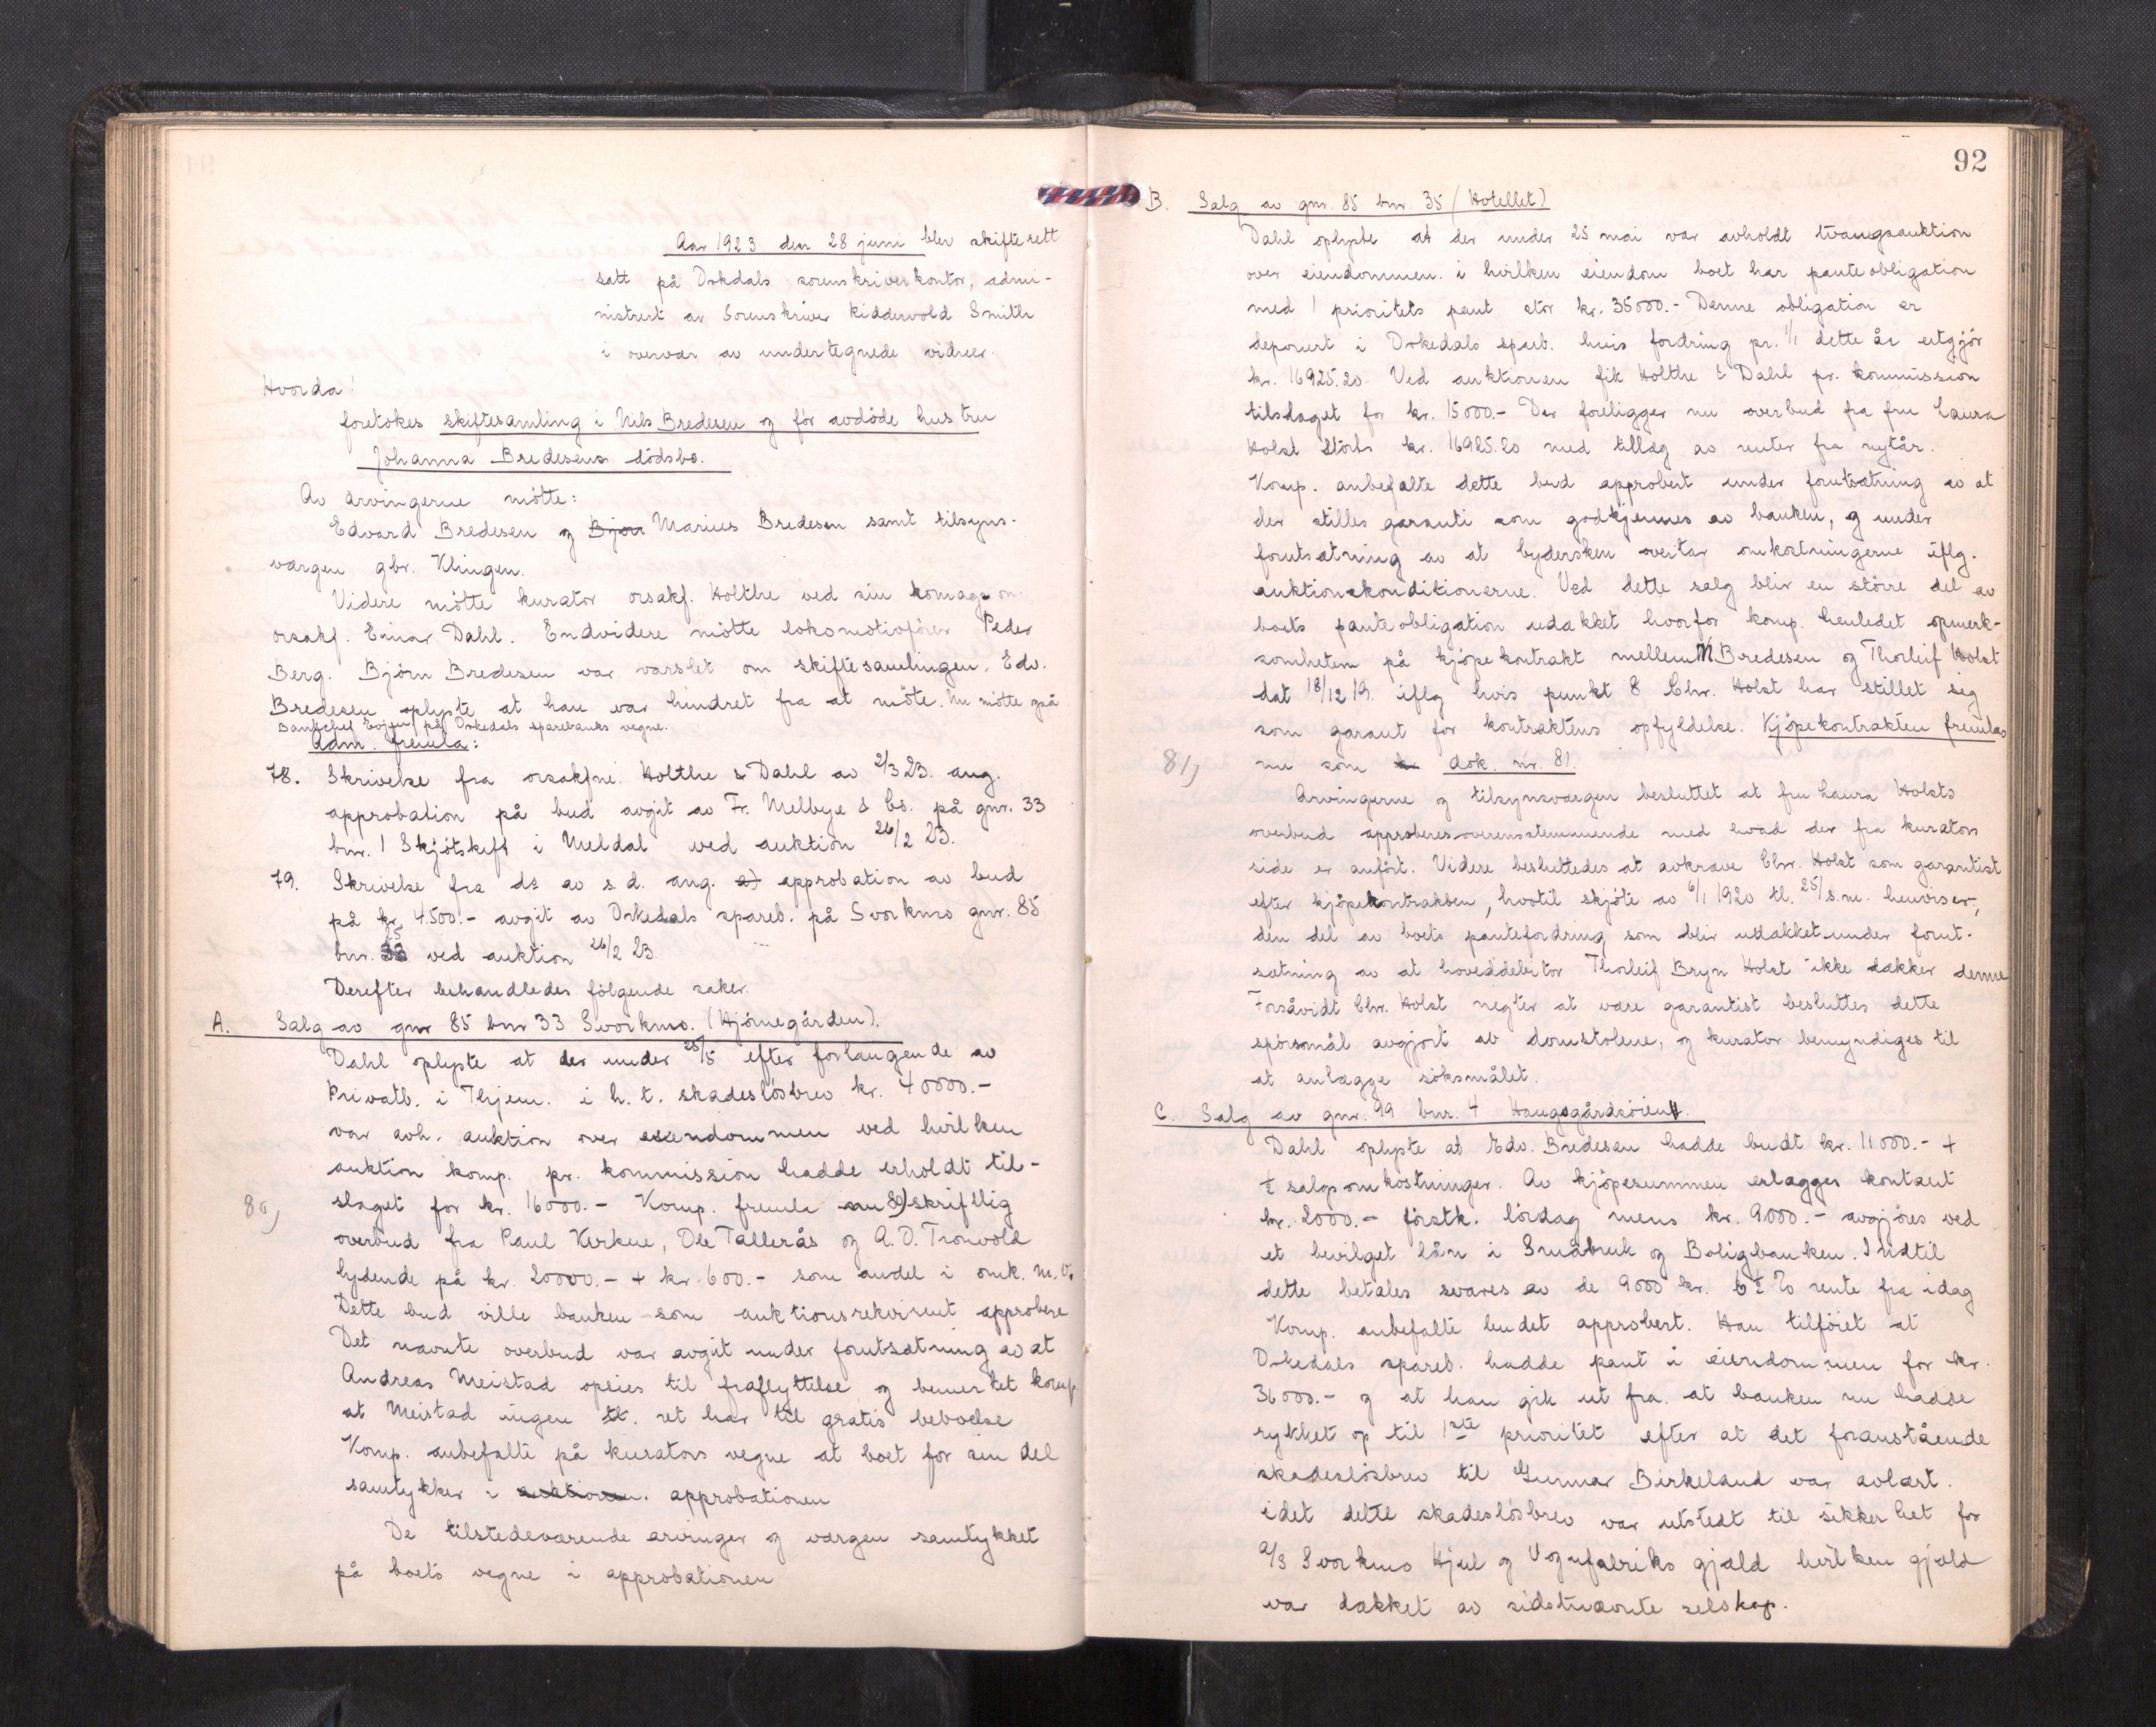 Aar 1923 den 28 juni blev skifterett
satt på Orkdals sorenskriverkontor, admi-
nistrert av Sorenskriver Kiddervold Smith
i overvær av undertegnede vidner.
Hvorda!
foretokes skiftesamling i Nils Bredesen og før avdöde hustru
Johanna Bredesens dödsbo.
Av arvingerne mötte:
Edvard Bredesen og Bjørn Marius Bredesen samt tilsyns-
værgen gbr. Klingen.
Videre mötte kurator orsakf. Holthe ved sin kompagnon
orsakf. Einar Dahl. Endvidere mötte lokomotivförer Peder
Berg. Björn Bredesen var varslet om skiftesamlingen. Edv.
Bredesen oplyste at han var hindret fra at möte. Nu mötte også
Bankchef Evjen på Orkedals sparebanks vegne.
Adm. fremla:
78. Skrivelse fra orsakfne. Holthe & Dahl av 2/3 23. ang.
approbation på bud avgit av Fr. Melbye & Co. på gnr. 33
bnr. 1 Skjötskift i Meldal ved auktion 26/2 23.
79. Skrivelse fra do av s.d. ang. a) approbation av bud
på kr. 4500.- avgit av Orkedals spareb. på Svorkmo gnr. 85
25
bnr. 33 ved auktion 26/2 23.
Derefter behandledes fölgende saker.
A. Salg av gnr 85 bnr 33 Svorkmo. (Hjörnegården).
Dahl oplyste at der under 25/5 efter forlangende av
Privatb. i Trjem. i h. t. skadeslösbrev kr. 40000.-
var avh. auktion over eiendommen ved hvilken
auktion komp. pr. kommission hadde erholdt til-
slaget for kr. 16000.- Komp. fremla 80) skriftlig
80)
overbud fra Paul Kirkne, Ole Tallerås og A. O. Tronvold
lydende på kr. 20000.- + kr. 600.- som andel i omk. m.v.
Dette bud ville banken som auktionsrekvirent approbere
Det nævnte overbud var avgit under forutsætning av at
Andreas Meistad opsies til fraflyttelse og bemerket komp.
at Meistad ingen ret har til gratis beboelse
Komp. anbefalte på kurators vegne at boet for sin del
samtykker i auktionen. approbationen
De tilstedeværende arvinger og værgen samtykket
på boets vegne i approbationen
92
B. Salg av gnr. 85 bnr. 35 (Hotellet)
Dahl oplyste at der under 25 mai var avholdt tvangsauktion
over eiendommen. i hvilken eiendom boet har panteobligation
med 1 prioritets pant stor kr. 35000.- Denne obligation er
deponert i Orkedals spareb. hvis fordring pr. 1/1 dette år utgjör
kr. 16925.20. Ved auktionen fik Holthe & Dahl pr. kommission
tilslaget for kr. 15000.- Der foreligger nu overbud fra fru Laura
Holst stort kr. 16925.20 med tillæg av renter fra nytår.
Komp. anbefalte dette bud approbert under forutsætning av at
der stilles garanti som godkjennes av banken, og under
forutsætning av at bydersken overtar omkostningerne iflg.
auktionskonditionerne. Ved dette salg blir en större del av
boets panteobligation udækket hvorfor komp. henledet opmerk-
somheten på kjöpekontrakt mellem N. Bredesen og Thorleif Holst
dat 18/12 19. iflg hvis punkt 8 Chr. Holst har stillet sig
som garant for kontraktens opfyldelse. Kjöpekontrakten fremlas
81) nu som dok. nr. 81.
Arvingerne og tilsynsværgen besluttet at fru Laura Holsts
overbud approberes overensstemmende med hvad der fra kurators
side er anfört. Videre besluttedes at avkræve Chr. Holst som garantist
efter kjöpekontrakten, hvortil skjöte av 6/1 1920 tl. 25/s.m. henviser,
den del av boets pantefordring som blir udækket under forut-
sætning av at hoveddebitor Thorleif Bryn Holst ikke dækker denne
Forsåvidt Chr. Holst negter at være garantist besluttes dette
spörsmål avgjort av domstolene, og kurator bemyndiges til
at anlægge söksmålet.
C. Salg av gnr. 99 bnr. 4 Haugsgårdsöien.
Dahl oplyste at Edv. Bredesen hadde budt kr. 11000.- +
½ salgsomkostninger. Av kjöpesummen erlægges kontant
kr. 2000.- förstk. lördag mens kr. 9000.- avgjöres ved
et bevilget lån i Småbruk og Boligbanken. Indtil
dette betales svares av de 9000 kr. 6½ % rente fra idag
Komp. anbefalte budet approbert. Han tilföiet at
Orkedals spareb. hadde pant i eiendommen for kr.
36000.- og at han gik ut fra. at banken nu hadde
rykket op til 1ste prioritet efter at det foranstående
skadeslösbrev til Gunnar Birkeland var avlæst.
idet dette skadeslösbrev var utstedt til sikkerhet for
A/S Svorkmo Hjul og Vognfabriks gjæld hvilken gjæld
var dækket av sidstnævnte selskap.